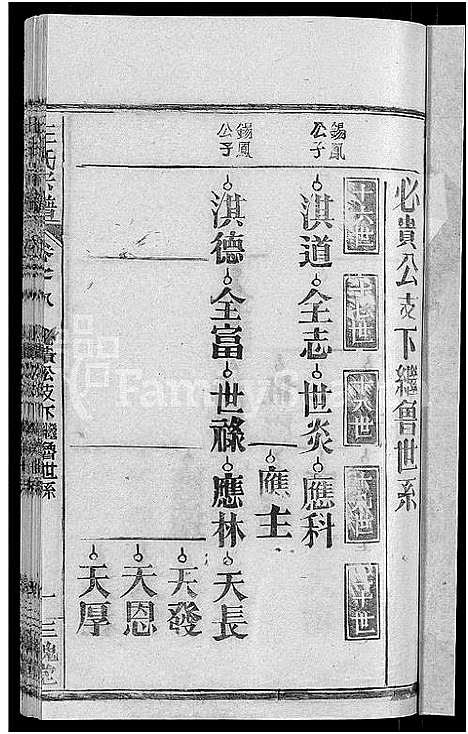 必貴公支下繼魯世系
十六世
十七世
十八世
十九世
二十世
錫鳳公子
淇道
全志
世炎
應科
應主
錫鳳公子
淇德
全富
世祿
應林
天長
天發
天恩
天厚
王氏宗譜
貴公支下繼魯世系
FamilySearch